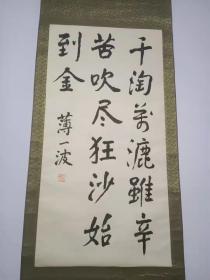 千淘萬漉雖辛
苦吹尽狂沙始
到金
薄一波